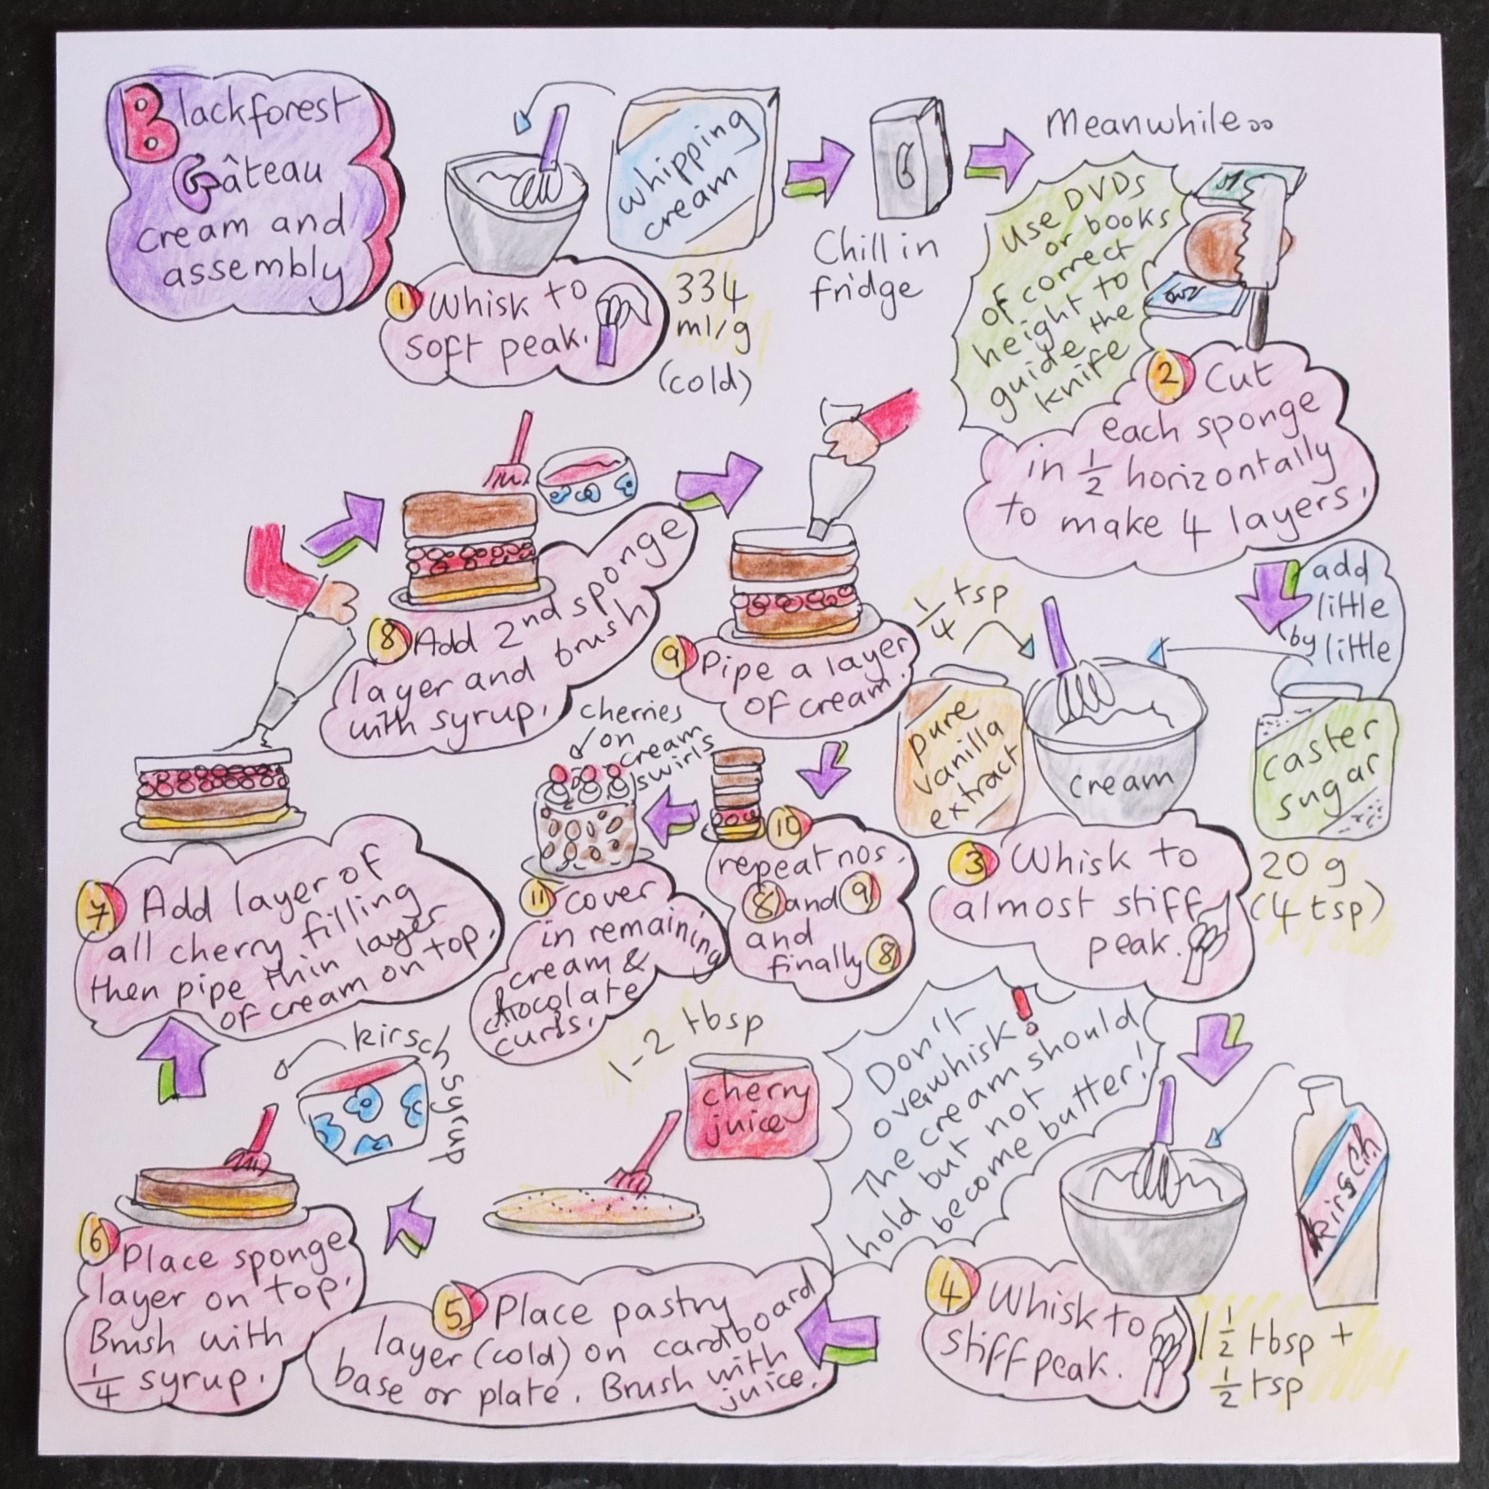 Blackforest
Gâteau
cream and
assembly
whipping
cream
1 Whisk to
soft peak.
334
ml/g
(cold)
Chill in
fridge
Meanwhile...
Use DVDs
or books
of correct
height to
guide the
knife
DVD
2 Cut
each sponge
in 1/2 horizontally
to make 4 layers.
add
little
by little
1/4 tsp
pure
vanilla
extract
cream
caster
sugar
3 Whisk to
almost stiff
peak.
20 g
(4 tsp)
Don't
overwhisk!
The cream should
hold but not
become butter!
kirsch
4 Whisk to
stiff peak.
1 1/2 tbsp +
1/2 tsp
1-2 tbsp
cherry
juice
5 Place pastry
layer (cold) on cardboard
base or plate. Brush with
juice.
kirsch syrup
6 Place sponge
layer on top.
Brush with
1/4 syrup.
7 Add layer of
all cherry filling
then pipe thin layer
of cream on top.
8 Add 2nd sponge
layer and brush
with syrup.
9 Pipe a layer
of cream.
10
repeat nos.
8 and 9
and
finally 8
cherries
on
cream
swirls
11 Cover
in remaining
cream &
chocolate
curls.